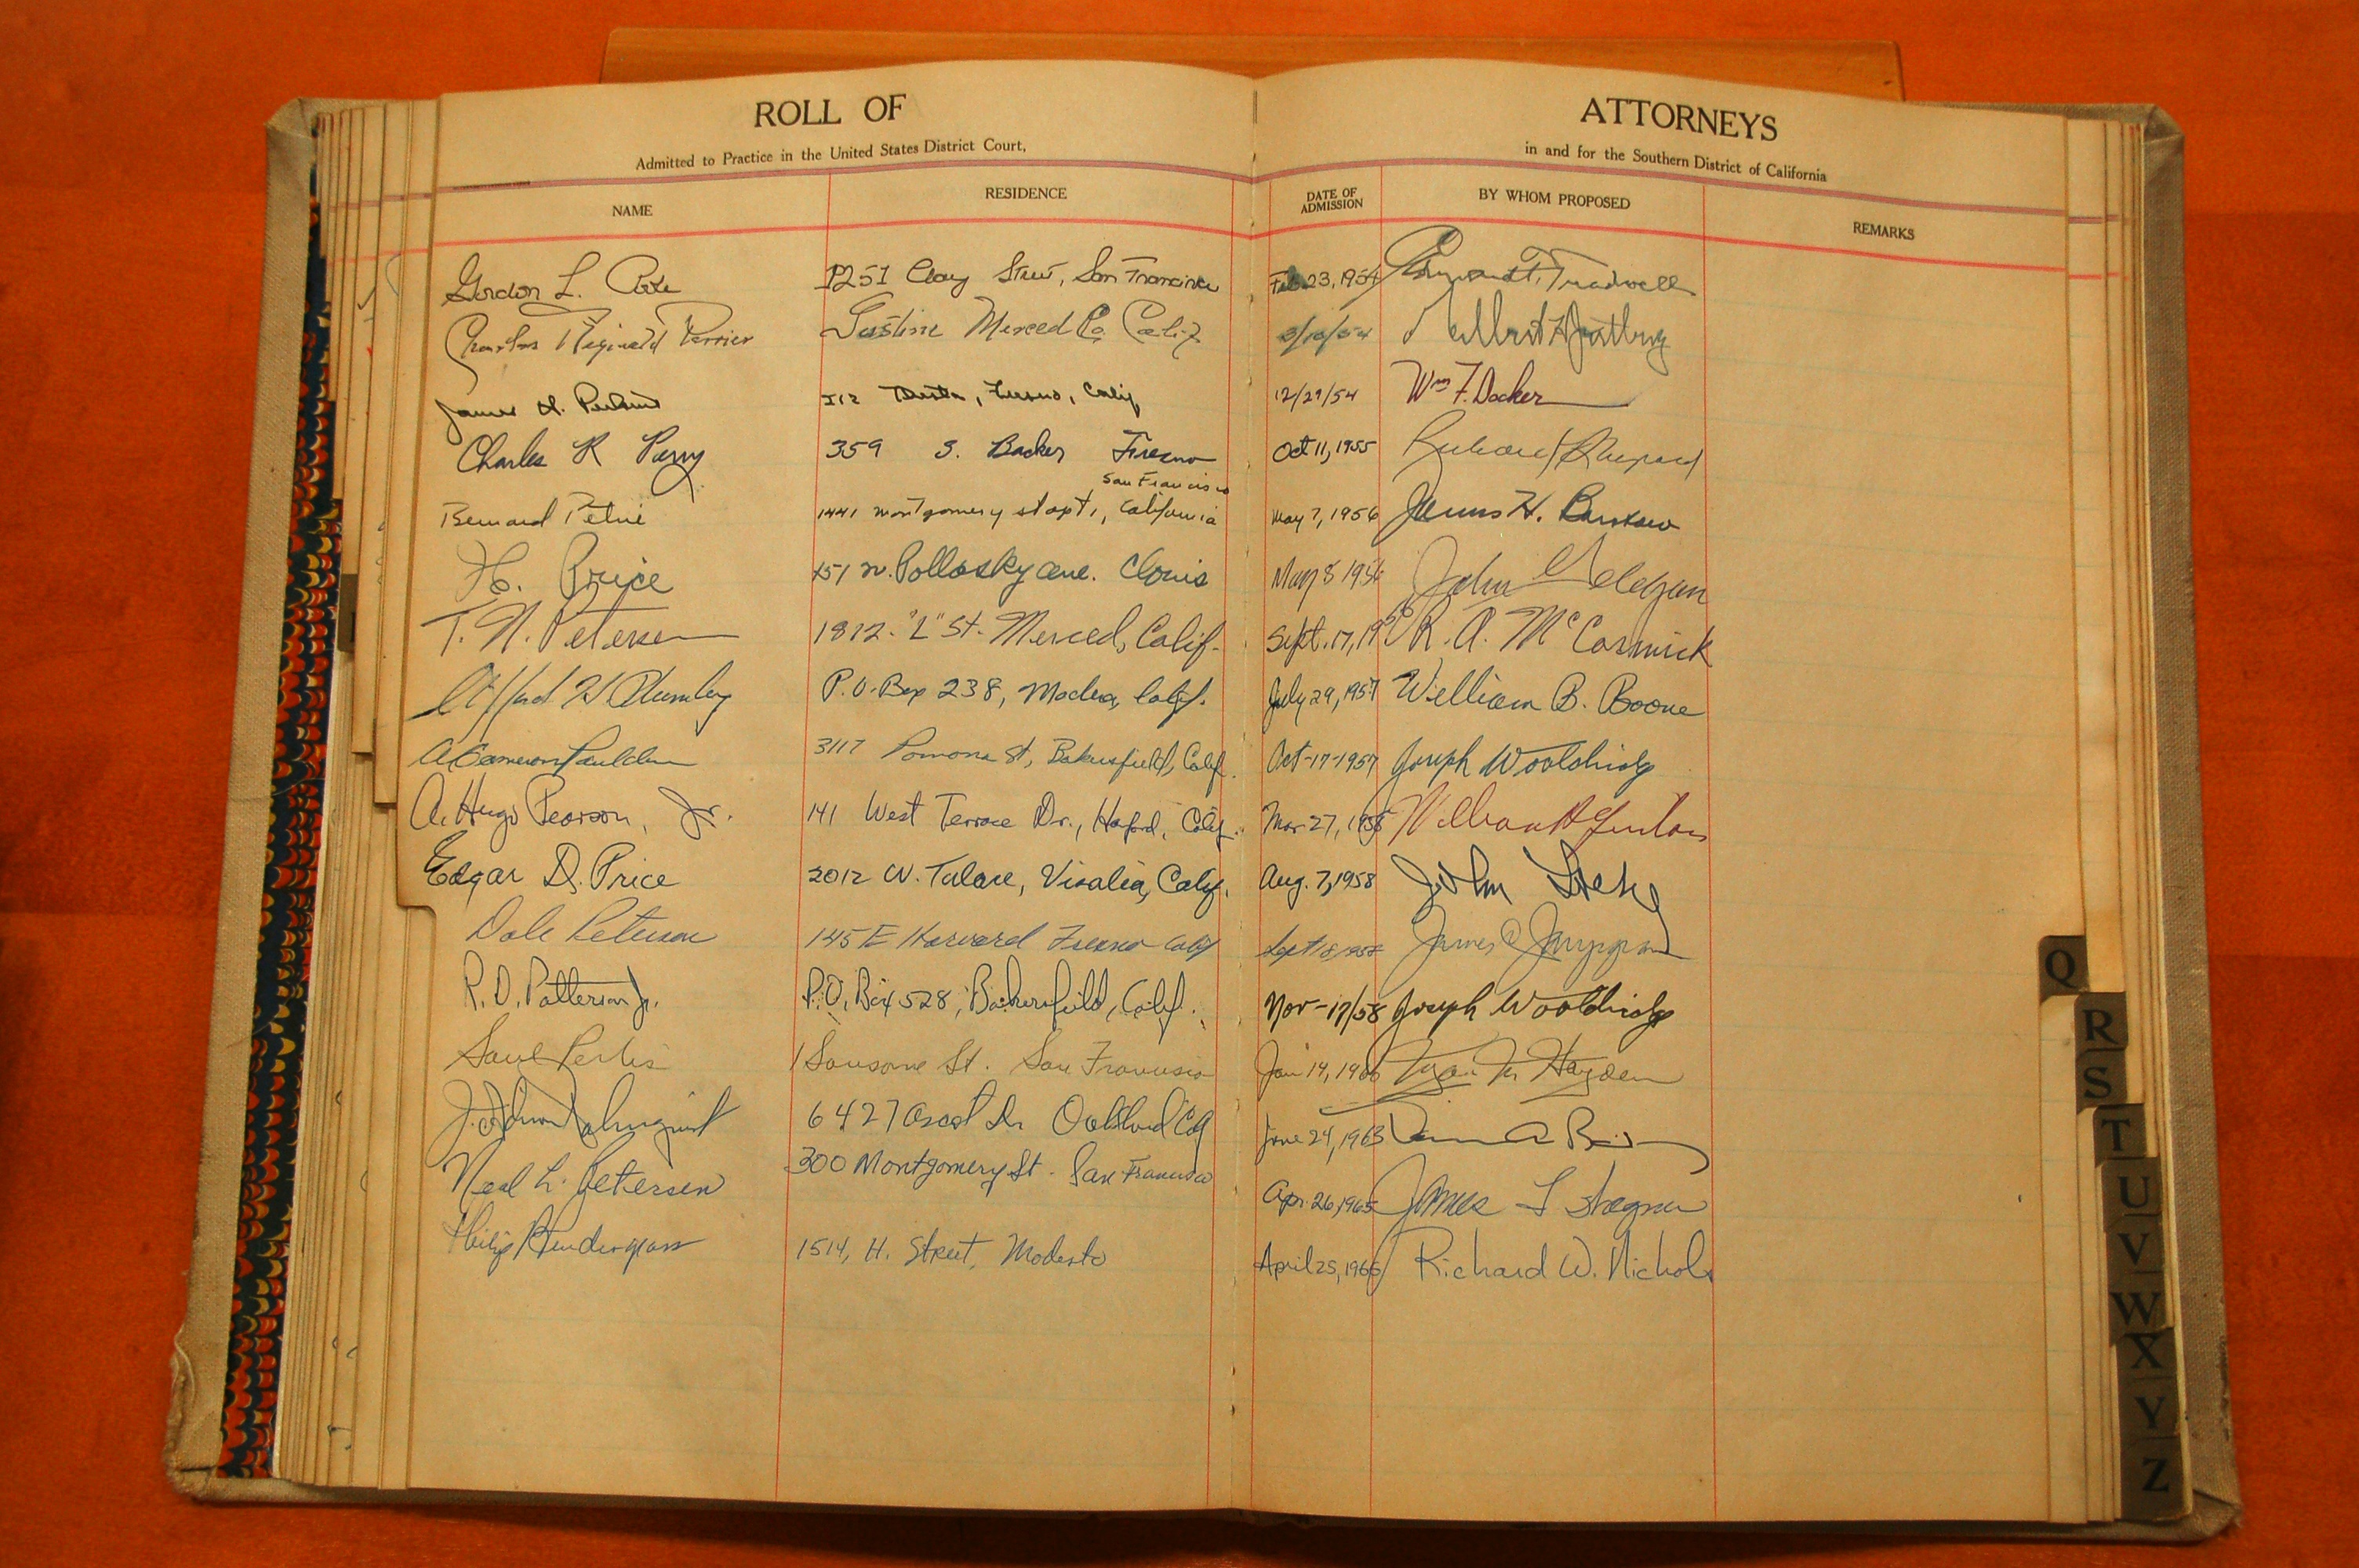 ROLL OF ATTORNEYS
Admitted to Practice in the United States District Court, in and for the Southern District of California
NAME RESIDENCE DATE OF ADMISSION BY WHOM PROPOSED REMARKS
Gordon L. Street, San Francisco Feb 23, 1954 Treadwell
Charles Reginald Perrier Gustine Merced Co. Calif 3/10/54
James H. Perkins Fresno, Calif 12/29/54 Wm F. Docker
Charles R Parry 359 S. Backer Fresno Oct 11, 1955 Richard Shepard
San Francisco
Bernard Petrie 1441 Montgomery st apt 1, California May 7, 1956 James H. Barstow
H. Price 151 N. Pollasky ave. Clovis May 8 1956 John
T. N. Petersen 1812 - "L" St. Merced, Calif. Sept. 17, 19 R. A. McCormick
P.O. Box 238, Madera, Calif. July 29, 1957 William B. Boone
A Cameron Paulden 3117 Pomona St, Bakersfield, Calif. Oct-17-1957 Joseph Wooldridge
A. Hugo Pearson, Jr. 141 West Terrace Dr., Haford, Calif. Mar 27, 1958
Edgar D. Price 2012 W. Tulare, Visalia, Calif. Aug. 7, 1958 John
Dale Petersen 145 E Harvard Fresno Calif Sept 18, 1958 James
R. D. Patterson Jr. P.O. Box 528, Bakersfield, Calif. Nov-17/58 Joseph Wooldridge
Saul Perlis 1 Sansome St. San Francisco Jan 14, 1960 Hayden
J. Edwin 6427 Ascot Dr Oakland Cal June 24, 1963
Neal L. Petersen 300 Montgomery St. San Francisco Apr. 26, 1965 James
Philip Pendergrass 1514, H. Street, Modesto April 25, 1966 Richard W. Nichols
Q
R
S
T
U
V
W
X
Y
Z